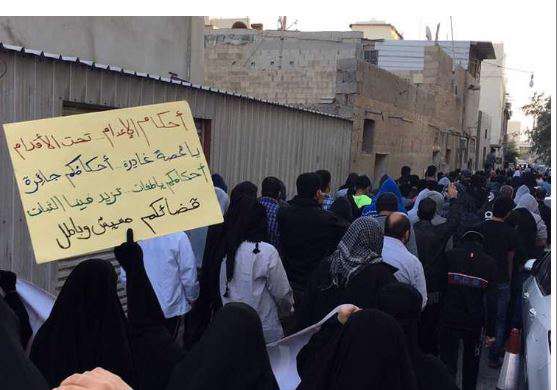 أحكام الإعدام تحت الأقدام
يا عصبة غادرة أحكامكم جائرة
أحكامكم باطلات تزيد فينا الثبات
قضائكم مسيس وباطل